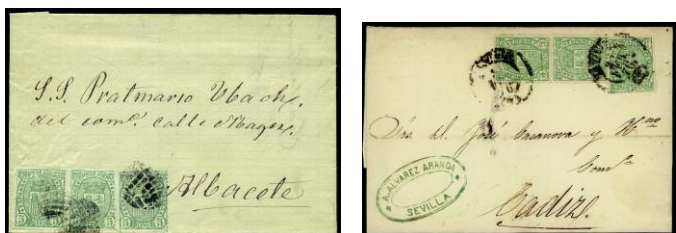 S.S. Pratmarso Ubach
del comº. calle Mayor.
Albacete
Sres. D. José Casanova y Hno
A. ALVAREZ ARANDA
SEVILLA
Cadiz.